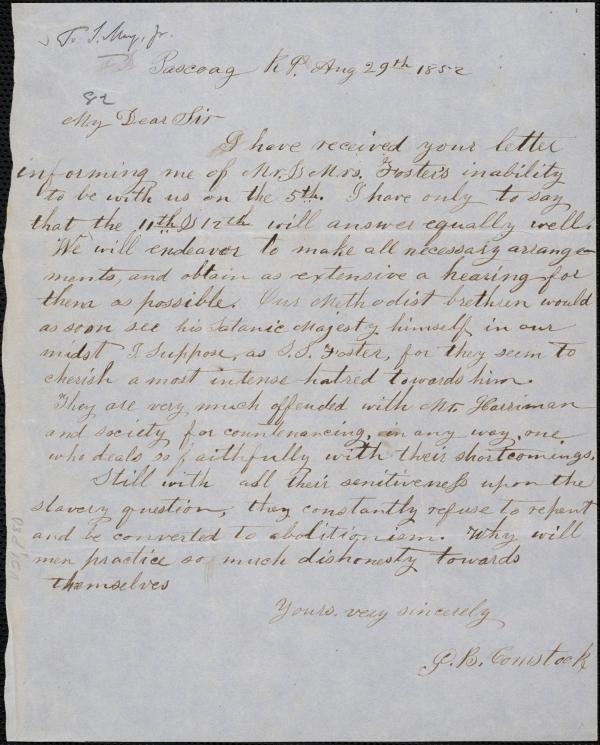 To S. May, Jr.
Pascoag R. I. Aug 29th 1852
82
My Dear Sir
I have received your letter
informing me of Mr. & Mrs. Foster's inability
to be with us on the 5th. I have only to say
that the 11th & 12th will answer equally well.
We will endeavor to make all necessary arrange-
ments, and obtain as extensive a hearing for
them as possible. Our Methodist brethren would
as soon see his Satanic Majesty himself in our
midst I suppose, as S. S. Foster, for they seem to
cherish a most intense hatred towards him.
They are very much offended with Mr. Harriman
and society for countenancing, in any way, one
who deals so faithfully with their shortcomings.
Still with all their senitiveness upon the
slavery question, they constantly refuse to repent
and be converted to abolitionism. Why will
men practice so much dishonesty towards
themselves
Yours very sincerely
G. B. Comstock